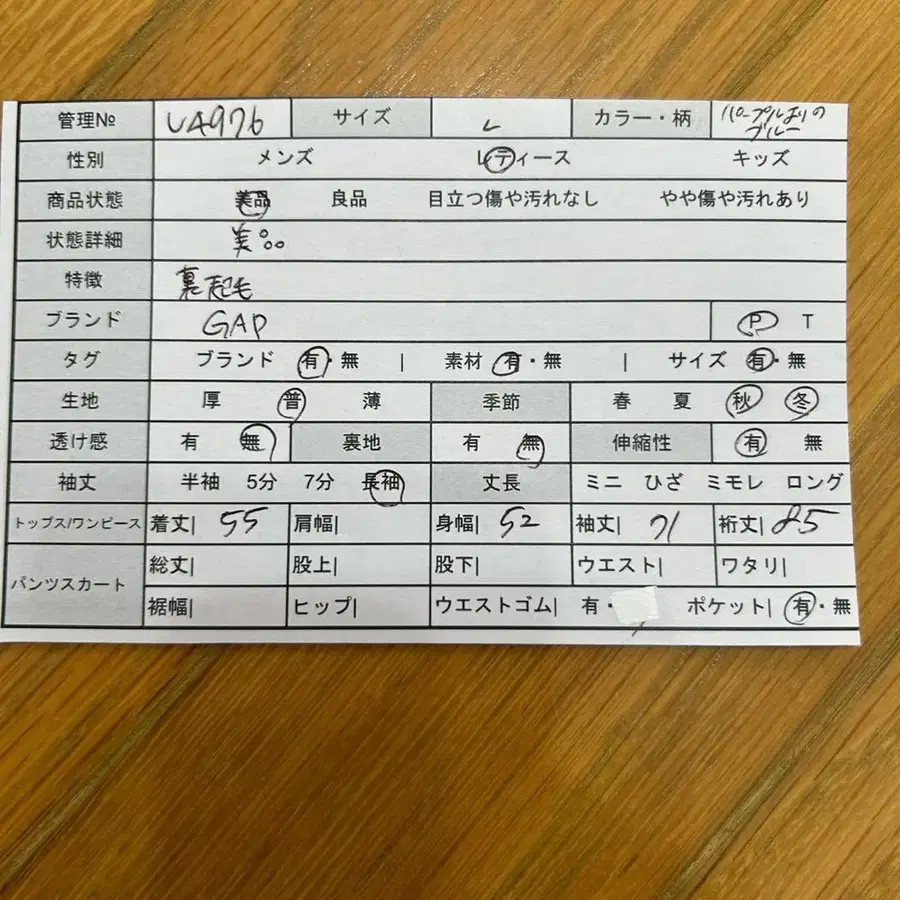 管理№ UA976 サイズ L カラー・柄 パープルよりのブルー
性別 メンズ レディース キッズ
商品状態 美品 良品 目立つ傷や汚れなし やや傷や汚れあり
状態詳細 美品
特徴 裏起毛
ブランド GAP P T
タグ ブランド 有・無 | 素材 有・無 | サイズ 有・無
生地 厚 普 薄 季節 春 夏 秋 冬
透け感 有 無 裏地 有 無 伸縮性 有 無
袖丈 半袖 5分 7分 長袖 丈長 ミニ ひざ ミモレ ロング
トップス/ワンピース 着丈| 55 肩幅| 身幅| 52 袖丈| 71 裄丈| 85
パンツスカート 総丈| 股上| 股下| ウエスト| ワタリ|
裾幅| ヒップ| ウエストゴム| 有・ ポケット| 有・無